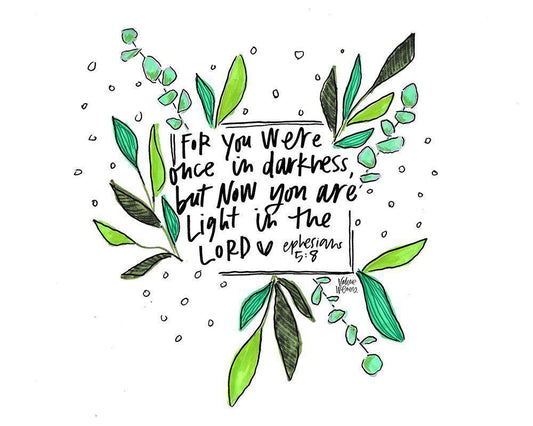 FOR you were
once in darkness,
but NOW you are
Light in the
LORD
ephesians
5:8